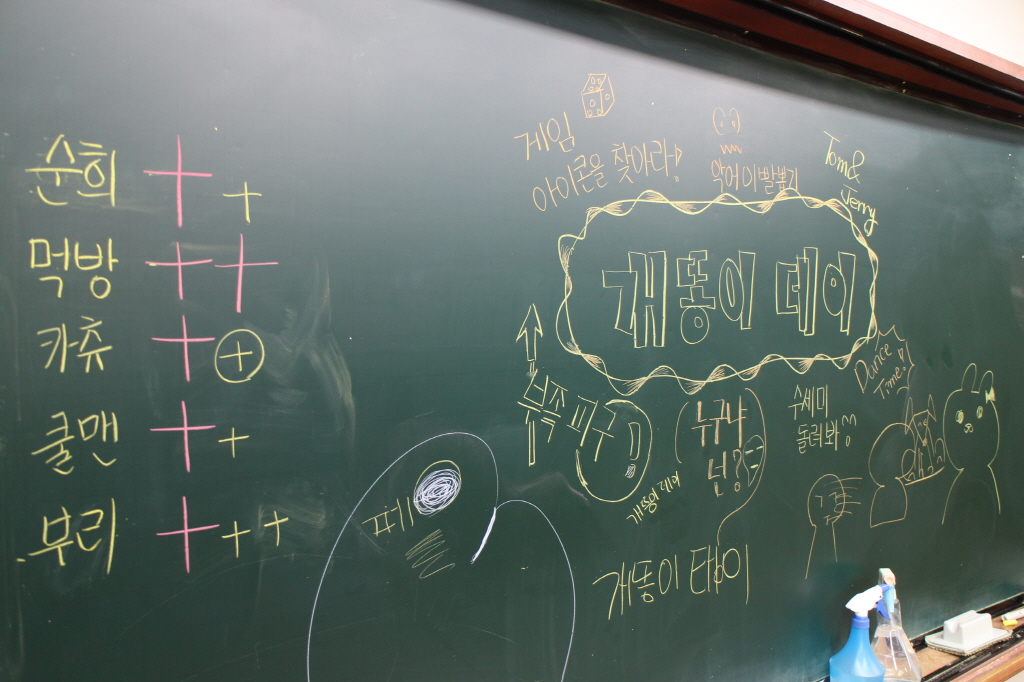 순희 + +
먹방 + +
카츄 + +
쿨맨 + +
부리 + + +
게임
아이콘을 찾아라!
악어이빨뽑기
Tom&
Jerry
개똥이 데이
Dance
Time!
부족 피구
누구냐
넌?
수세미
돌려봐
개똥이 데이
개똥이